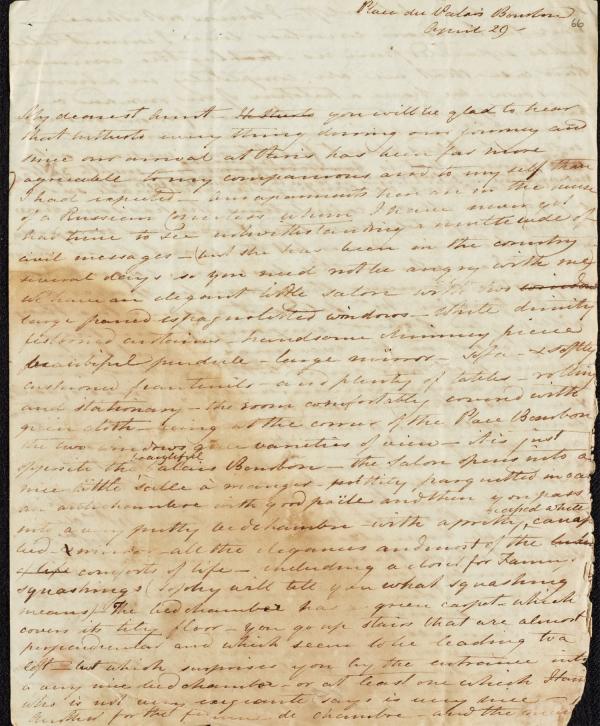 Place du Palais Bourbon
66
April 29 -
My dearest Aunt - you will be glad to hear
that hitherto every thing during our journey and
since our arrival at Paris has been far more
agreeable to my companions and to myself than
I had expected - our apartments here are in the house
of a Russian Countess whom I have never yet
had time to see notwithstanding a multitude of
civil messages - but she has been in the country
several days so you need not be angry with me
We have an elegant little salon with two
large paned espagnoletted windows - white dimity
festooned curtains - handsome chimney piece
beautiful pendule - large mirror - sofa - & softly
cushioned fauteuils - and plenty of tables - rolling
and stationary - the room comfortably covered with
green cloth - being at the corner of the Place Bourbon
the two windows give varieties of view - it is just
opposite the beautiful Palais Bourbon - the salon opens into a
nice little salle à manger prettily parquetted in oak
an antichambre with good poële and then you pass
into a very pretty bedchambre - with a pretty draped white canapy
bed - & mirror - all the elegancies and most of the
comforts of life - including a closet for
squashings (Sophy will tell you what squashing
means) The bedchamber has a green carpet - which
covers its tiny floor - you go up stairs that are almost
perpendicular and which seem to be leading to a
loft - but which surprises you by the entrance into
a very nice bedchamber - or at least one which
who is not very exigeante says is very nice -
Another for the femme de chambre - and the